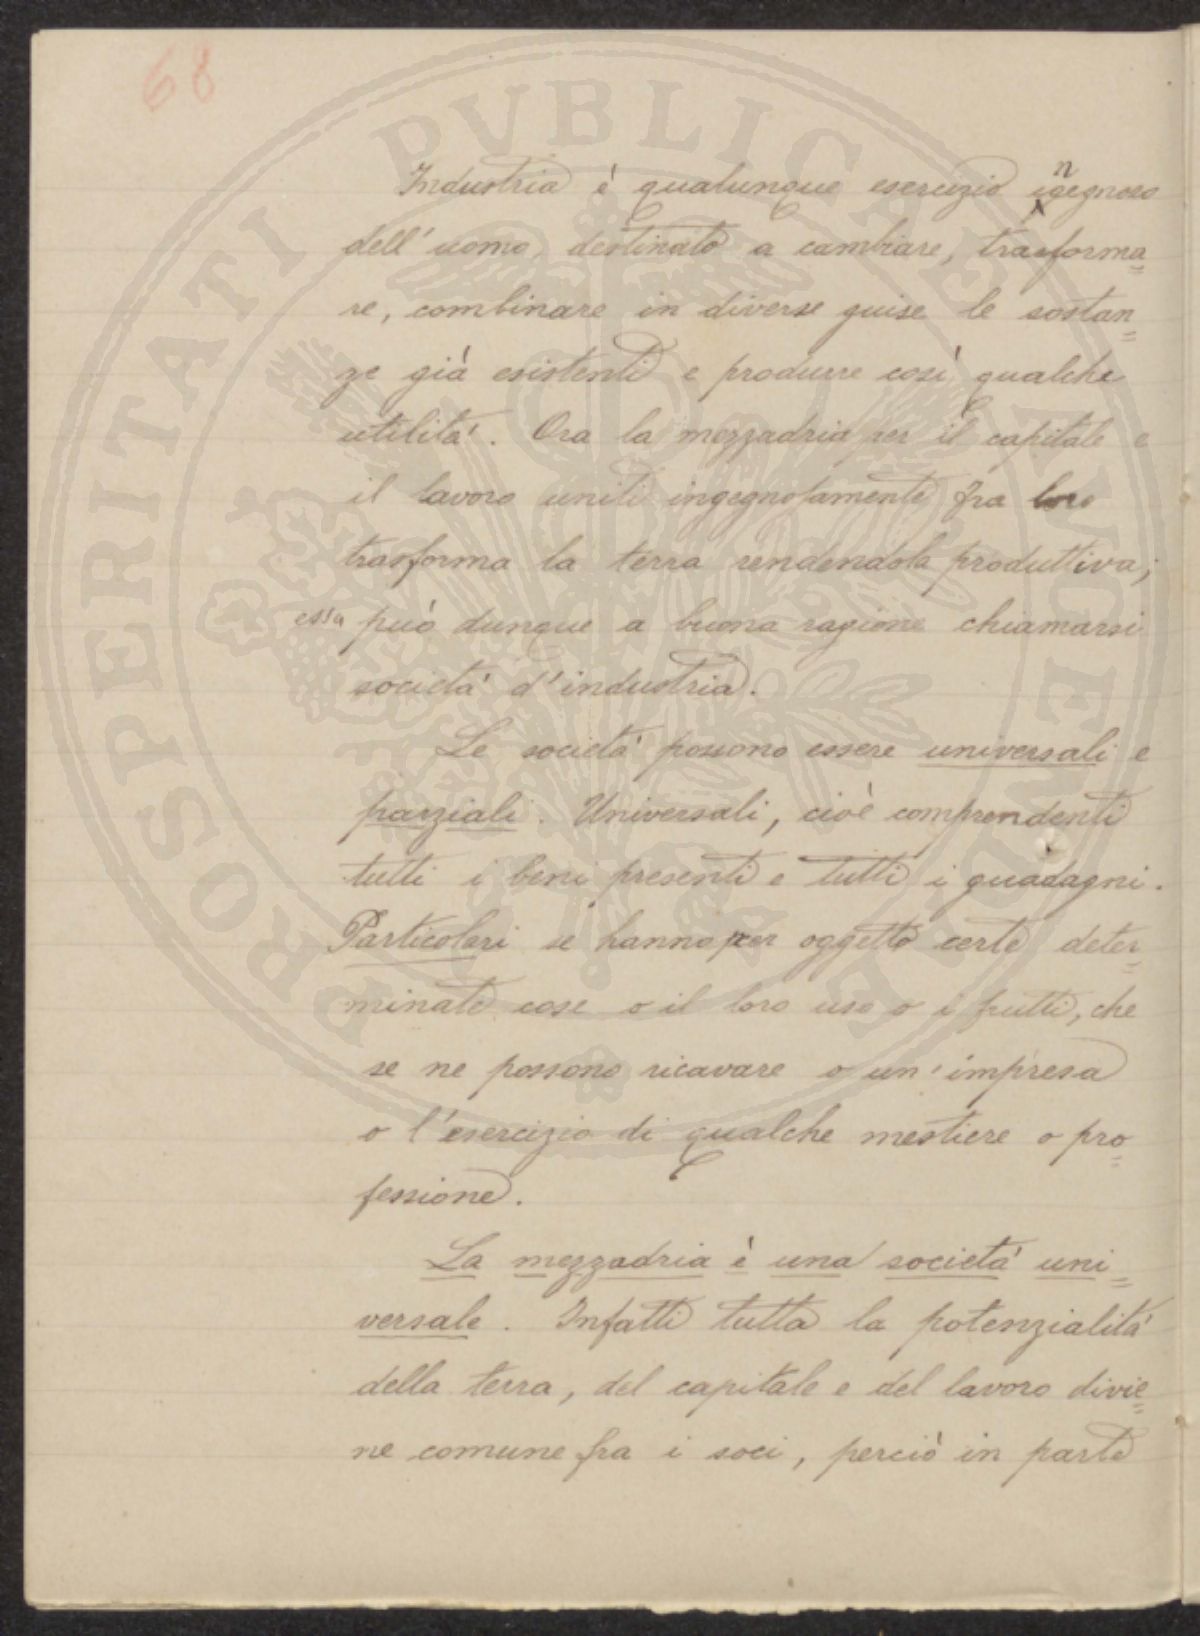 68
Industria è qualunque esercizio ingegnoso
dell'uomo, destinato a cambiare, trasforma=
re, combinare in diverse guise le sostan=
ze già esistenti e produrre così qualche
utilità. Ora la mezzadria per il capitale e
il lavoro uniti ingegnosamente fra loro
trasforma la terra rendendola produttiva;
essa può dunque a buona ragione chiamarsi
società d'industria.
Le società possono essere universali e
parziali. Universali, cioè comprendenti
tutti i beni presenti e tutti i guadagni.
Particolari se hanno per oggetto certe deter=
minate cose o il loro uso o i frutti, che
se ne possono ricavare o un'impresa
o l'esercizio di qualche mestiere o pro=
fessione.
La mezzadria è una società uni=
versale. Infatti tutta la potenzialità
della terra, del capitale e del lavoro divie=
ne comune fra i soci, perciò in parte
PROSPERITATI PVBLICAE AVGENDAE